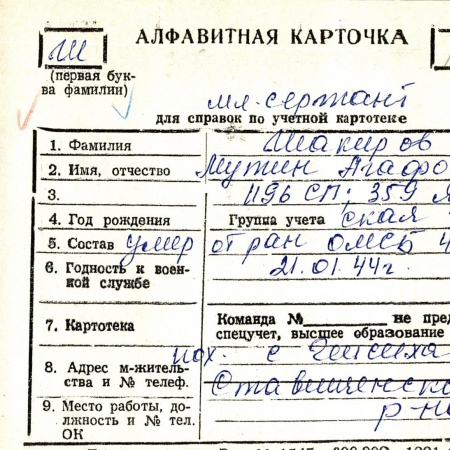 Ш
АЛФАВИТНАЯ КАРТОЧКА
(первая бук-
ва фамилии)
мл. сержант
для справок по учетной картотеке
1. Фамилия Шакиров
2. Имя, отчество Мутин Агафо
3. 1196 СП. 359
4. Год рождения Группа учета ская
5. Состав умер от ран ОМСБ 4
6. Годность к воен-
ной службе 21.01.44г.
7. Картотека Команда № не пред
спецучет, высшее образование
пох. с
8. Адрес м-житель-
ства и № телеф. Ставищенско
р-н
9. Место работы, до-
лжность и № тел.
ОК